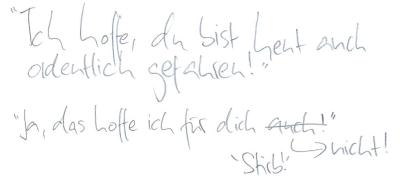 "Ich hoffe, du bist heut auch
ordentlich gefahren!"
"Ja, das hoffe ich für dich auch!"
nicht!
"Stirb!"